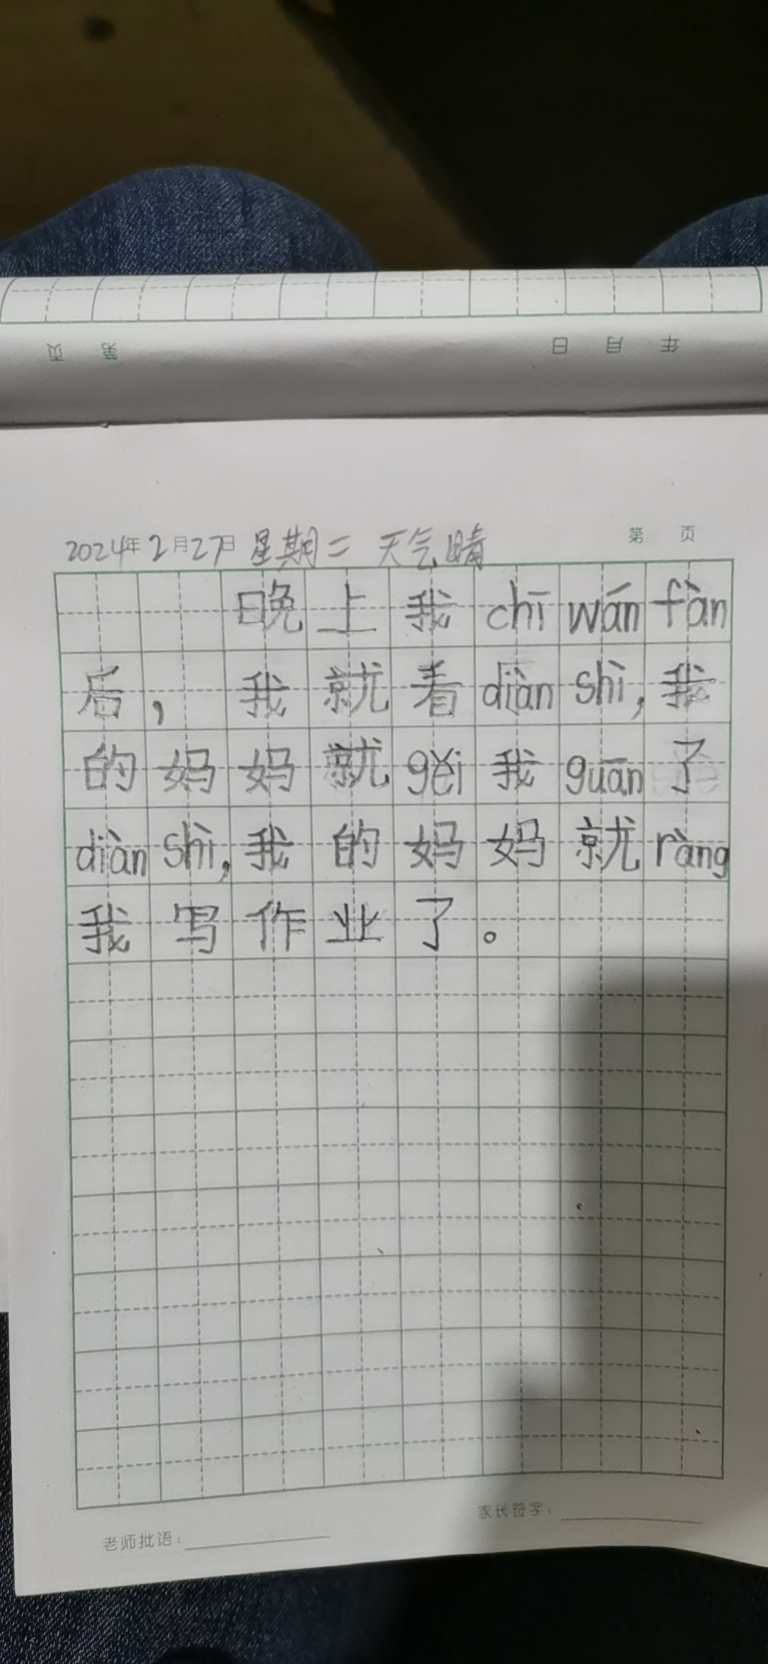 年 月 日 第 页
2024年2月27日 星期二 天气晴 第 页
晚上我chī wán fàn
后，我就看diàn shì,我
的妈妈就gěi我guān了
diàn shì,我的妈妈就ràng
我写作业了。
老师批语：
家长签字：